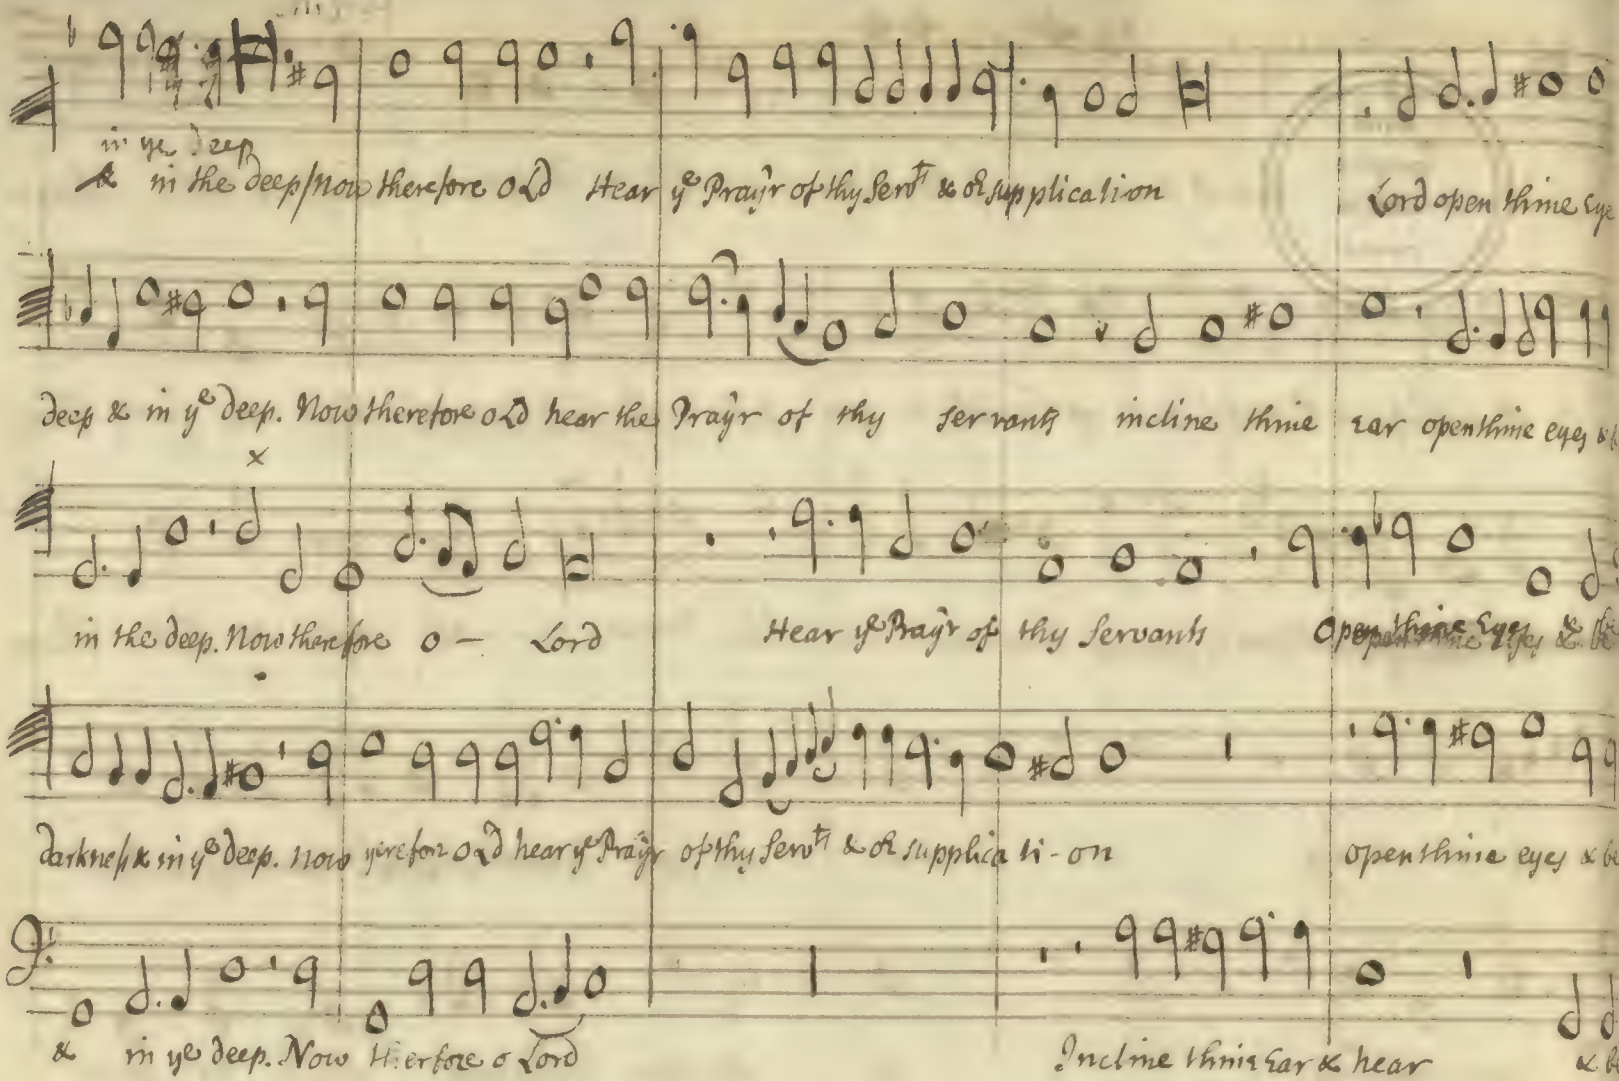 in ye deep
& in the deep/Now therefore o Ld Hear ye Pray'r of thy Servts & or supplicati-on Lord open thine Eye
deep & in ye deep. Now therefore o Ld hear the Pray'r of thy servants incline thine Ear open thine eyes & be
x
in the deep. Now therefore o – Lord Hear ye Pray'r of thy Servants Open thine Eyes & be
darkness & in ye deep. now yerefore o Ld hear ye Pray'r of thy Servts & or supplica ti-on open thine eyes & be
& in ye deep. Now therfore o Lord Incline thine Ear & hear & be